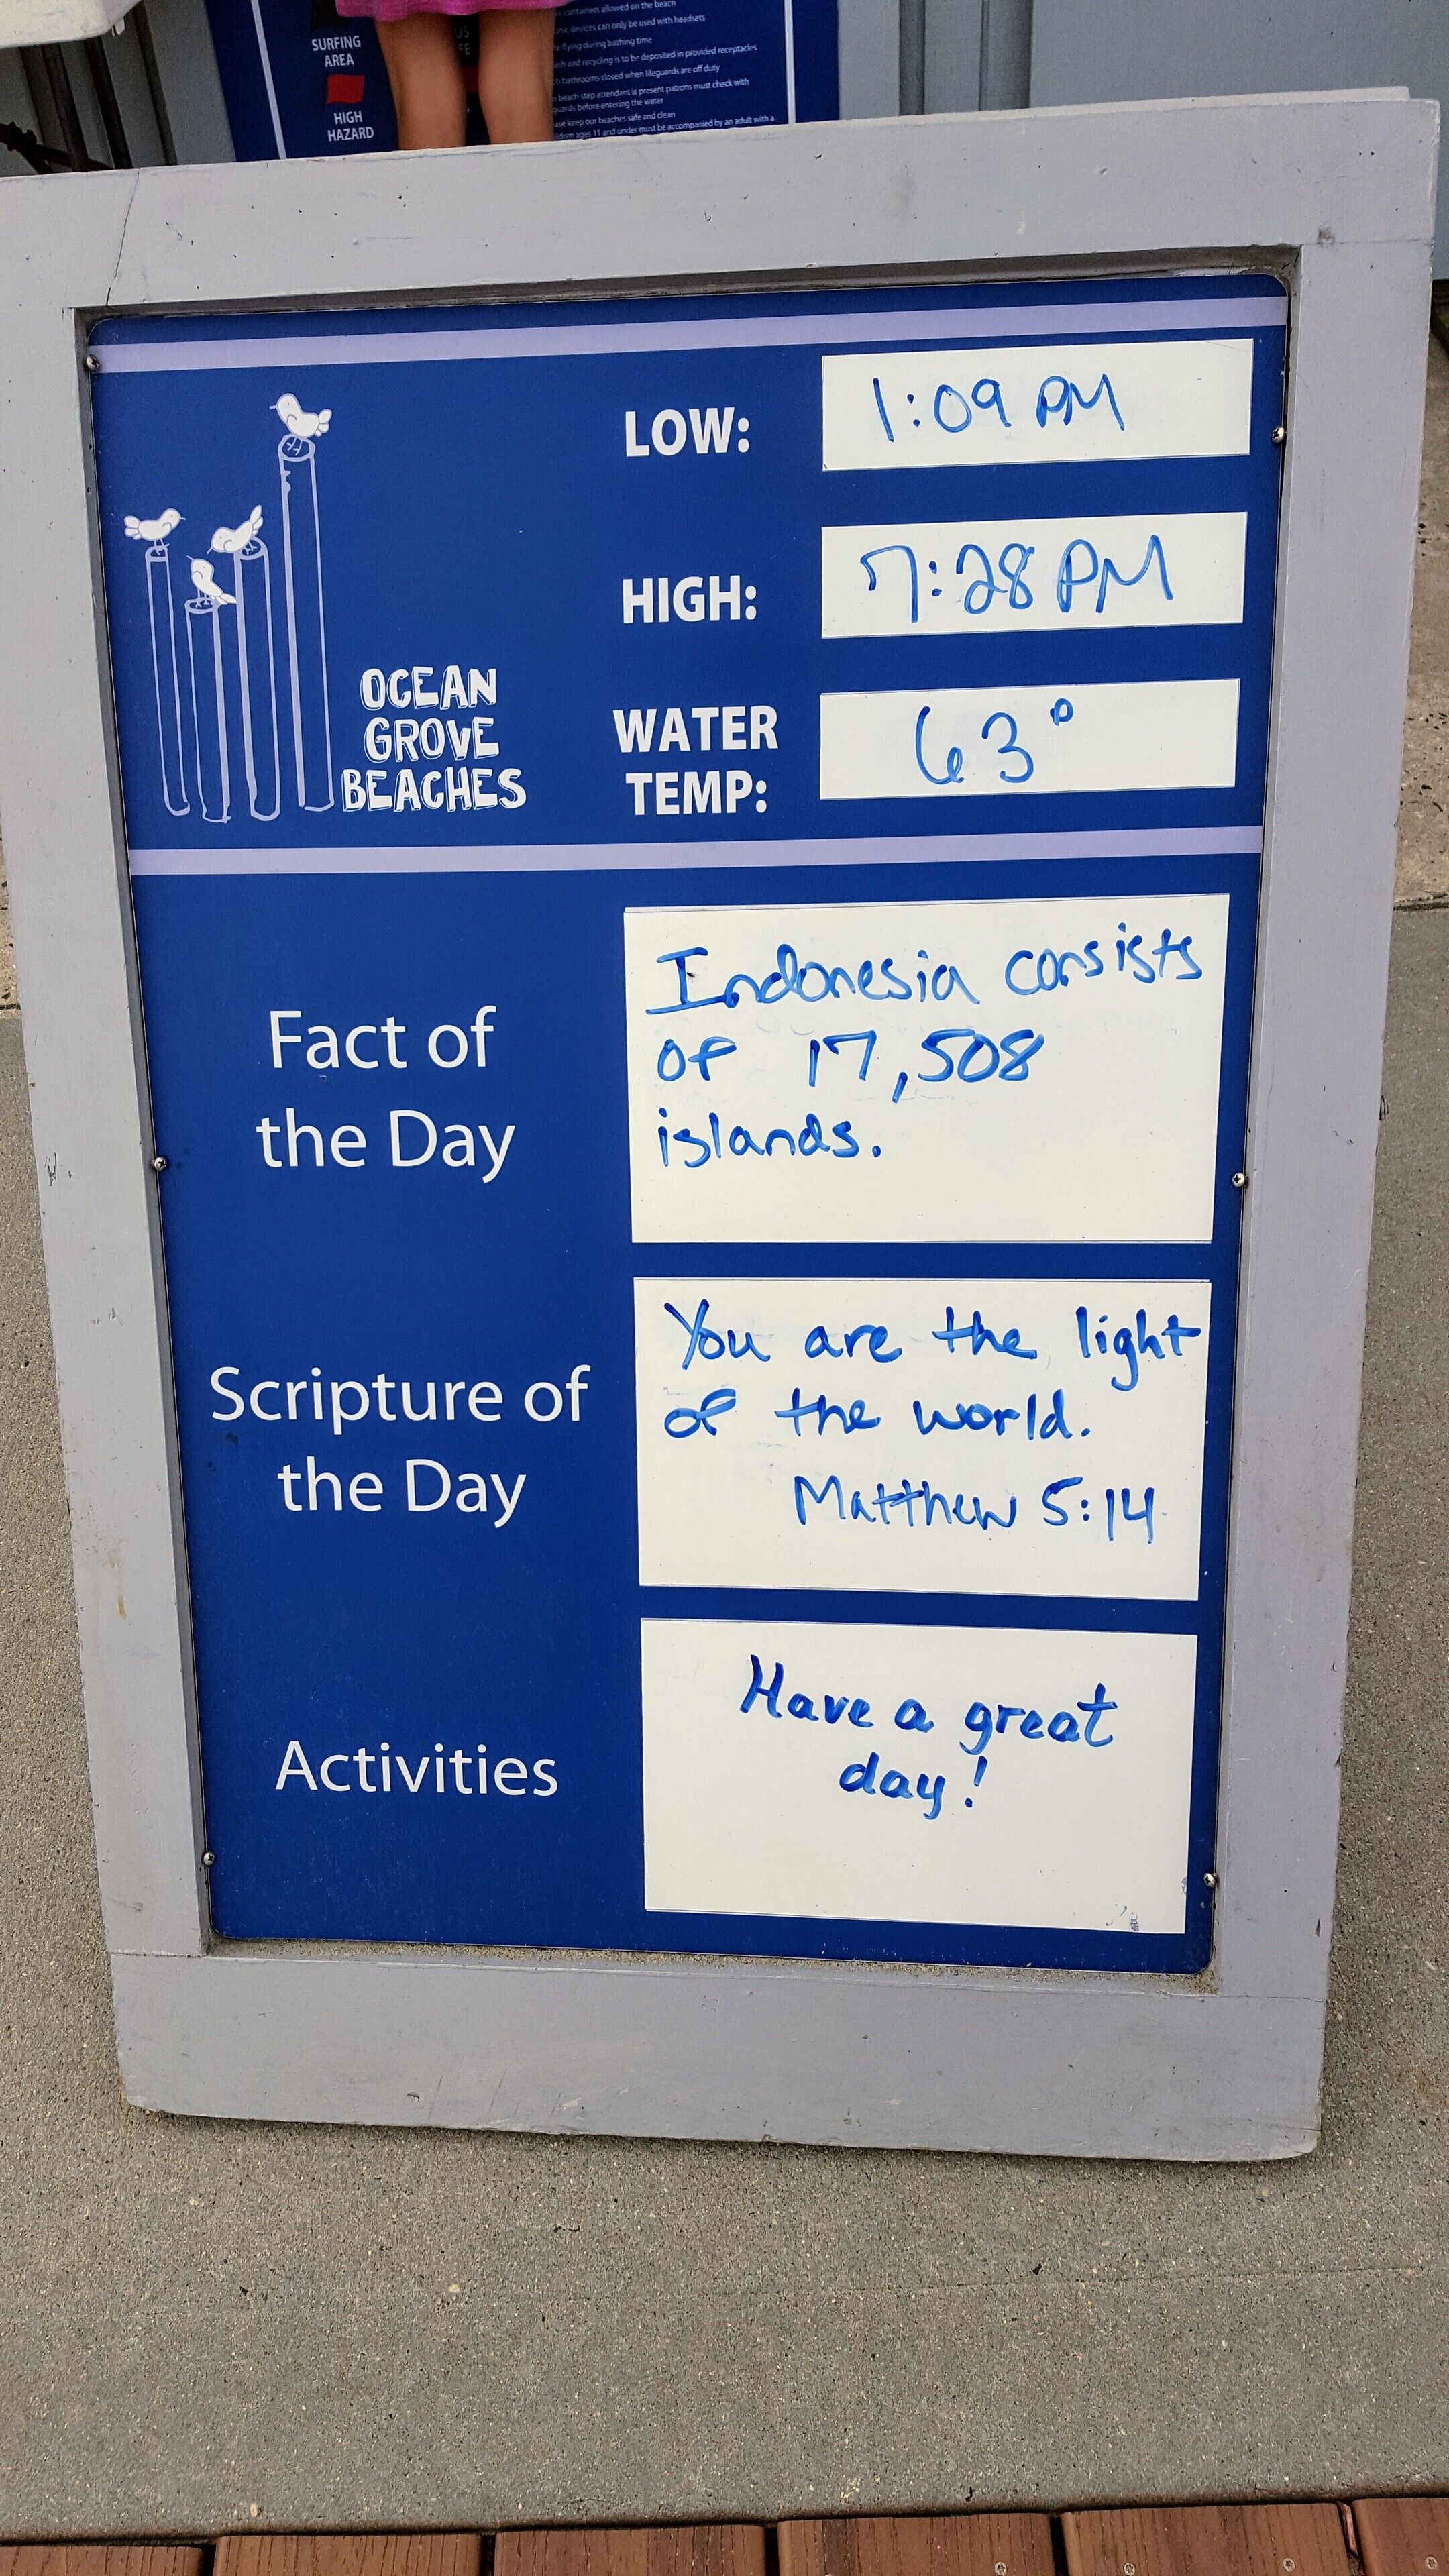 SURFING
AREA
HIGH
HAZARD
US
FE
containers allowed on the beach
devices can only be used with headsets
flying during bathing time
and recycling is to be deposited in provided receptacles
bathrooms closed when lifeguards are off duty
beach step attendant is present patrons must check with
guards before entering the water
keep our beaches safe and clean
ages 11 and under must be accompanied by an adult with a
LOW:
1:09 PM
HIGH:
7:28 PM
WATER
TEMP:
63°
OCEAN
GROVE
BEACHES
Fact of
the Day
Indonesia consists
of 17,508
islands.
Scripture of
the Day
You are the light
of the world.
Matthew 5:14
Activities
Have a great
day!